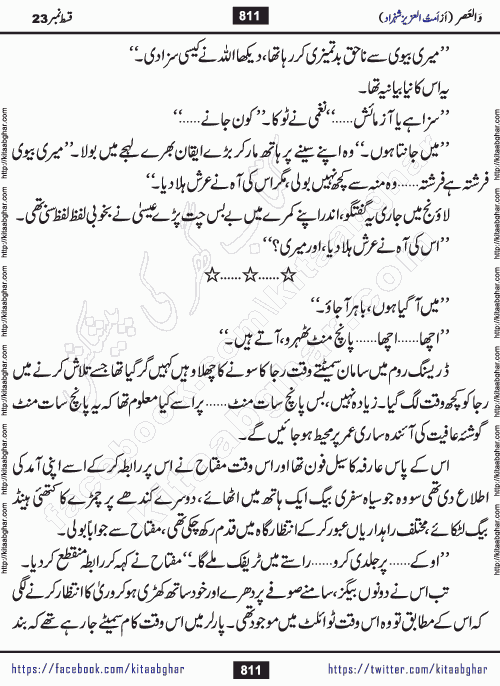 وَالعَصر (از اَمتُ العزیز شہزاد)
811
قسط نمبر 23
’’میری بیوی سے ناحق بدتمیزی کر رہا تھا، دیکھا اللہ نے کیسی سزا دی۔‘‘
یہ اس کا نیا بیانیہ تھا۔
’’سزا ہے یا آزمائش……‘‘ نغمی نے ٹوکا۔ ’’کون جانے……‘‘
’’میں جانتا ہوں۔‘‘ وہ اپنے سینے پر ہاتھ مار کر بڑے ایقان بھرے لہجے میں بولا۔ ’’میری بیوی
فرشتہ ہے فرشتہ……وہ منہ سے کچھ نہیں بولی، مگر اس کی آہ نے عرش ہلا دیا۔‘‘
لاؤنج میں جاری یہ گفتگو، اندر اپنے کمرے میں بے بس چت پڑے عیسیٰ نے بخوبی لفظ لفظ سنی تھی۔
’’اس کی آہ نے عرش ہلا دیا، اور میری؟‘‘
☆……☆……☆
’’میں آ گیا ہوں، باہر آ جاؤ۔‘‘
’’اچھا…… اچھا…… پانچ منٹ ٹھہرو، آتے ہیں۔‘‘
ڈریسنگ روم میں سامان سمیٹتے وقت رجا کا سونے کا چھلا وہیں کہیں گر گیا تھا جسے تلاش کرنے میں
رجا کو کچھ وقت لگ گیا۔ زیادہ نہیں، بس پانچ سات منٹ……پر اسے کیا معلوم تھا کہ یہ پانچ سات منٹ
گوشۂ عافیت کی آئندہ ساری عمر پر محیط ہو جائیں گے۔
اس کے پاس عارفہ کا سیل فون تھا اور اس وقت مفتاح نے اس پر رابطہ کر کے اسے اپنی آمد کی
اطلاع دی تھی سو وہ جو سیاہ سفری بیگ ایک ہاتھ میں اٹھائے، دوسرے کندھے پر چمڑے کا کتھئی ہینڈ
بیگ لٹکائے، مختلف راہداریاں عبور کر کے انتظار گاہ میں قدم رکھ چکی تھی، مفتاح سے جواباً بولی۔
’’اوکے……پر جلدی کرو…… راستے میں ٹریفک ملے گا۔‘‘ مفتاح نے کہہ کر رابطہ منقطع کر دیا۔
تب اس نے دونوں بیگز، سامنے صوفے پر دھرے اور خود ساتھ کھڑی ہو کر وریٰ کا انتظار کرنے لگی
کہ اس کے مطابق تو وہ اس وقت ٹوائلٹ میں موجود تھی۔ پارلر میں اس وقت کام سمیٹے جا رہے تھے کہ بند
https://facebook.com/kitaabghar
811
https://twitter.com/kitaabghar
http://kitaabghar.com http://kitaabghar.com http://kitaabghar.com http://kitaabghar.com http://kitaabghar.com
http://kitaabghar.com http://kitaabghar.com http://kitaabghar.com http://kitaabghar.com http://kitaabghar.com
کتاب گھر کی پیشکش
facebook.com/kitaabghar
kitaabghar.com